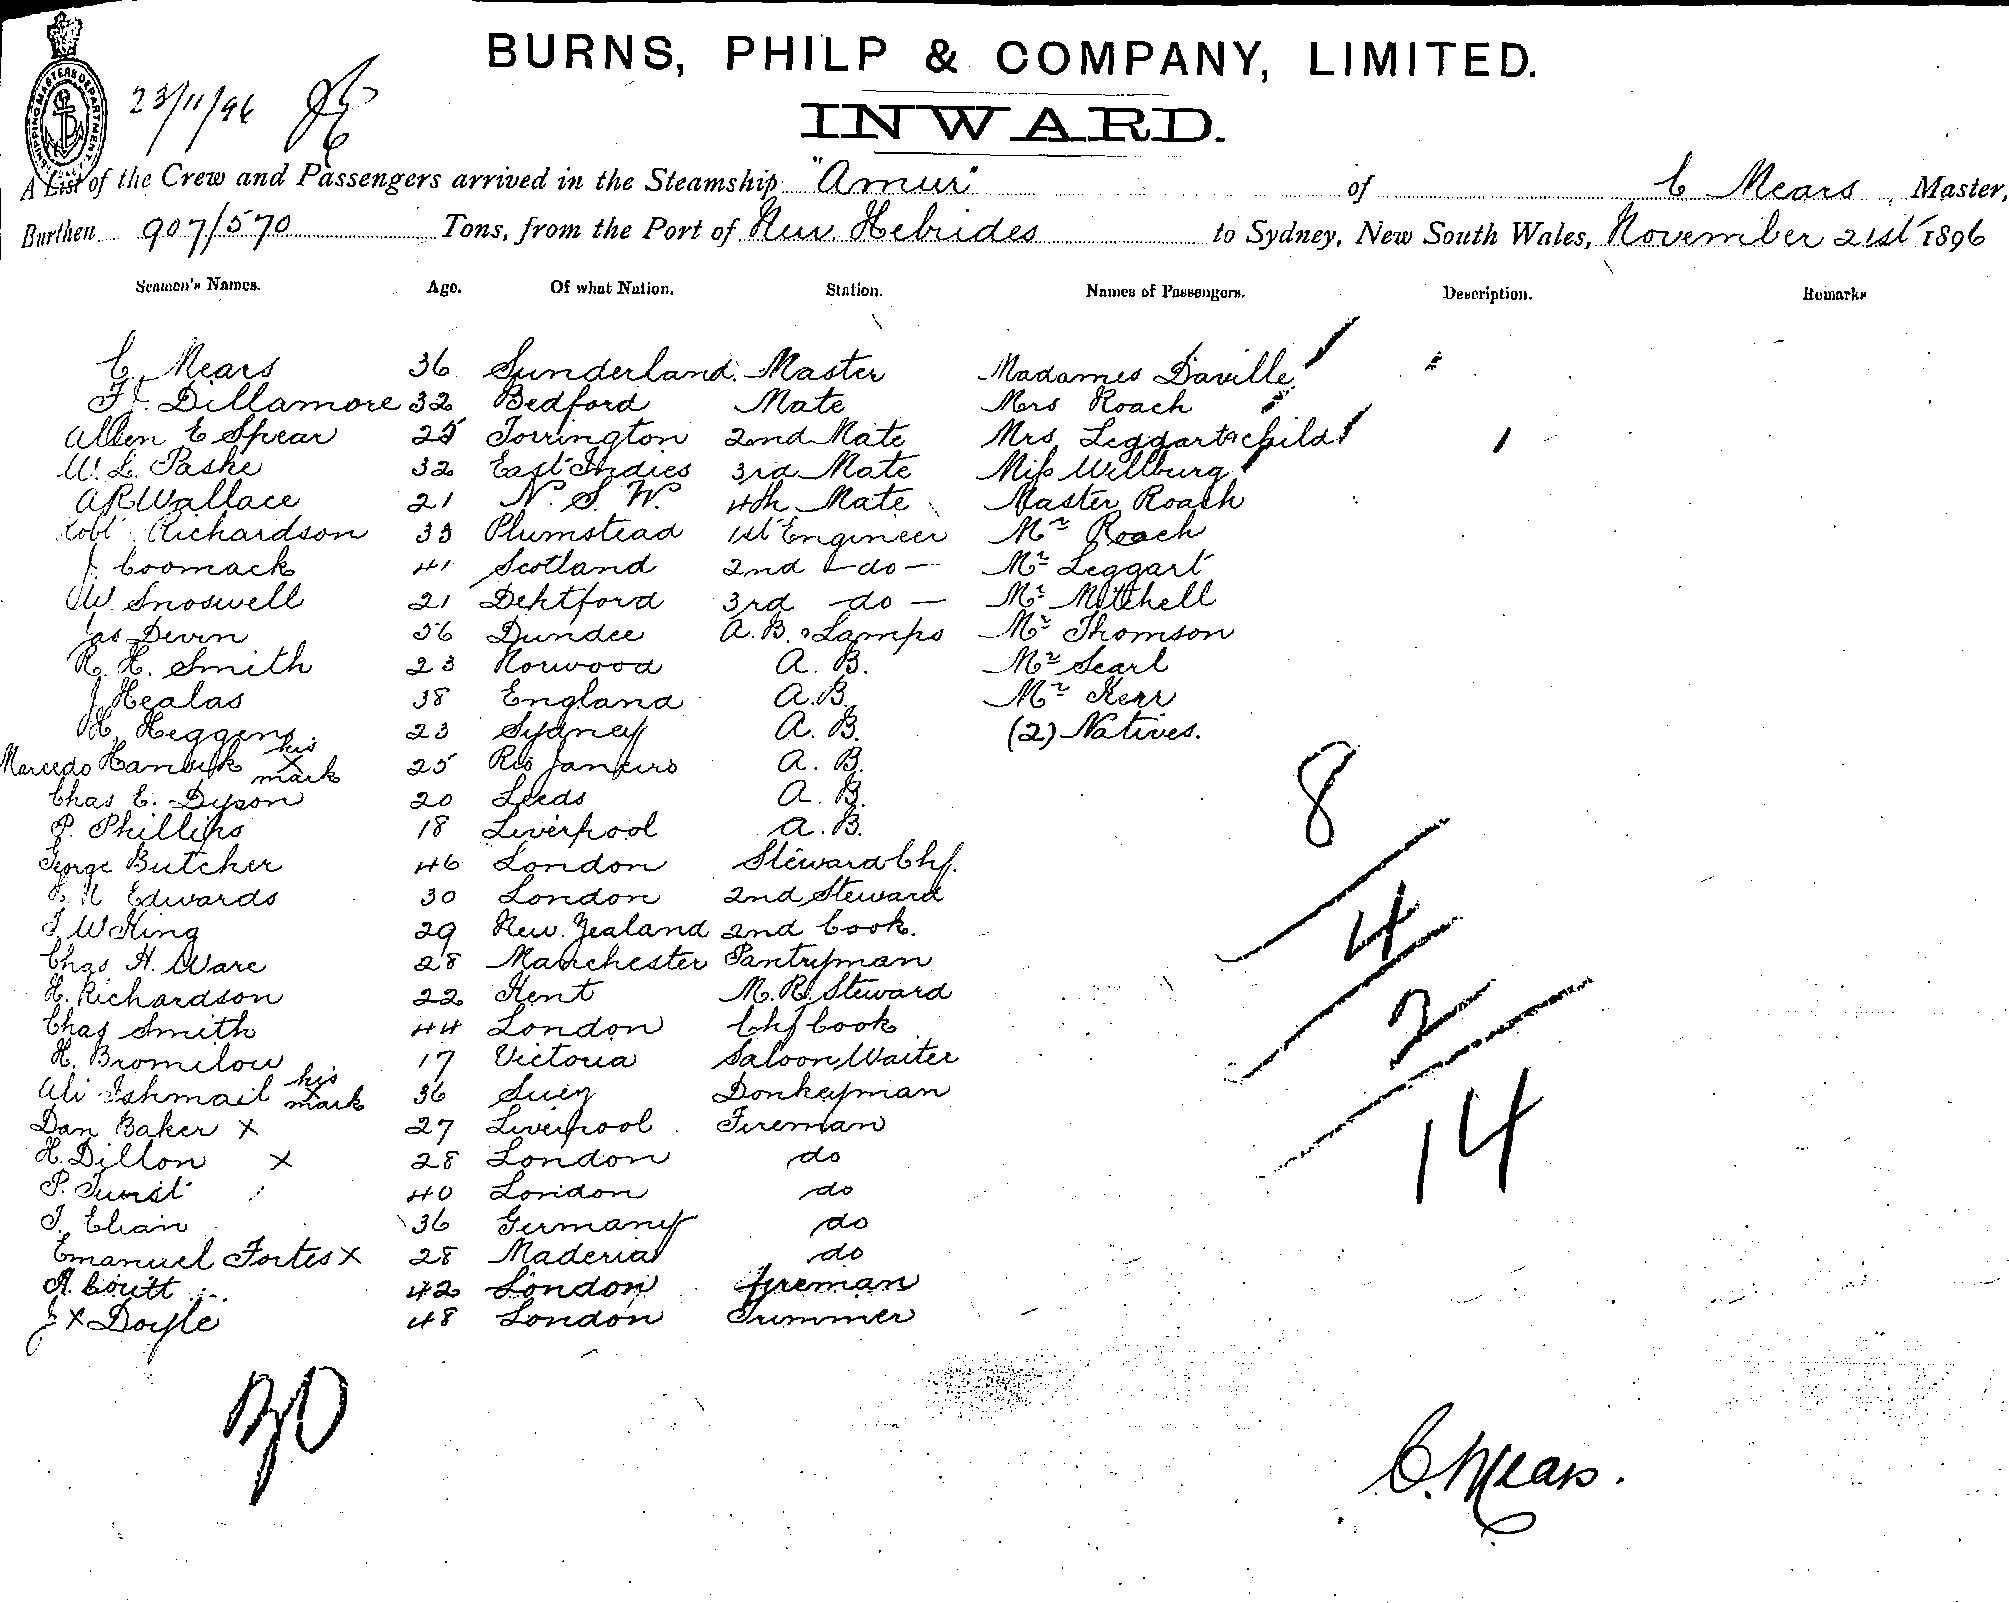 BURNS, PHILP & COMPANY, LIMITED.
SHIPPING MASTERS DEPARTMENT
23/11/96
INWARD.
A List of the Crew and Passengers arrived in the Steamship "Amur" of C Mears, Master,
Burthen 907/570 Tons, from the Port of New Hebrides to Sydney, New South Wales, November 21st 1896
Seamen's Names. Age. Of what Nation. Station. Names of Passengers. Description. Remarks
C Mears 36 Sunderland. Master Madames Daville
Dillamore 32 Bedford Mate Mrs Roach
Allen E Spear 25 Torrington 2nd Mate Mrs Leggart & child
W. L. Paske 32 East Indies 3rd Mate Miss Willburg
A R Wallace 21 N. S. W. 4th Mate Master Roach
Robt Richardson 33 Plumstead 1st Engineer Mr Roach
J. Coomack 41 Scotland 2nd - do - Mr Leggart
W. Snoswell 21 Dehtford 3rd - do - Mr Mitchell
Jas Devin 56 Dundee A. B. & Lamps Mr Thomson
R. H. Smith 23 Norwood A. B. Mr Searl
J Healas 38 England A.B. Mr Kerr
H. Heggens 23 Sydney A. B. (2) Natives.
Marcedo his X mark 25 Rio Janeiro A. B.
Chas E. Dyson 20 Leeds A. B.
P. Phillips 18 Liverpool A. B.
George Butcher 46 London Steward Chf.
Edwards 30 London 2nd Steward
J W King 29 New Zealand 2nd Cook.
Chas H. Ware 28 Manchester Pantryman
H. Richardson 22 Kent M. R. Steward
Chas Smith 44 London Chf Cook
H. Bromilow 17 Victoria Saloon Waiter
Ali Ishmail his mark 36 Suez Donkeyman
Dan Baker X 27 Liverpool Fireman
H. Dillon X 28 London do
P. 40 London do
J. 36 Germany do
Emanuel Fortes X 28 Maderia do
A. Coutt 42 London fireman
J X Doyle 48 London Trimmer
8
4
2
14
30
C. Mears.